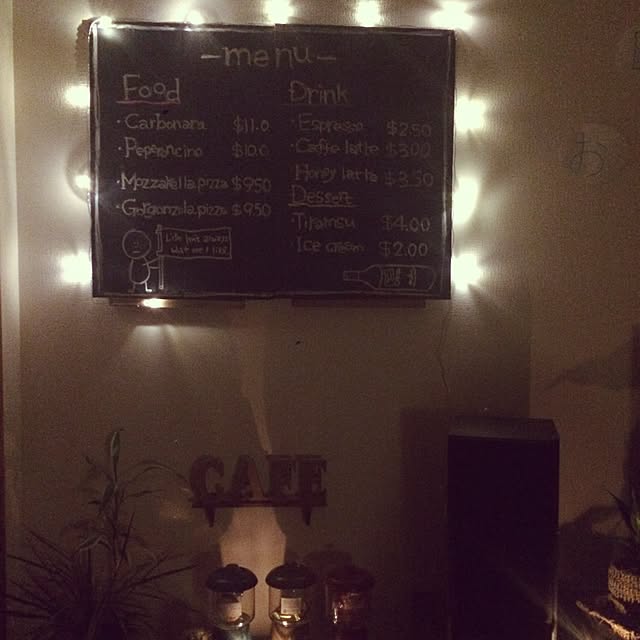 -menu-
Food
· Carbonara $11.0
· Peperoncino $10.0
Mozzarella pizza $9.50
Gorgonzola pizza $9.50
Drink
· Espresso $2.50
· Caffe latte $3.00
Honey latte $3.50
Dessert
Tiramisu $4.00
Ice cream $2.00
CAFE